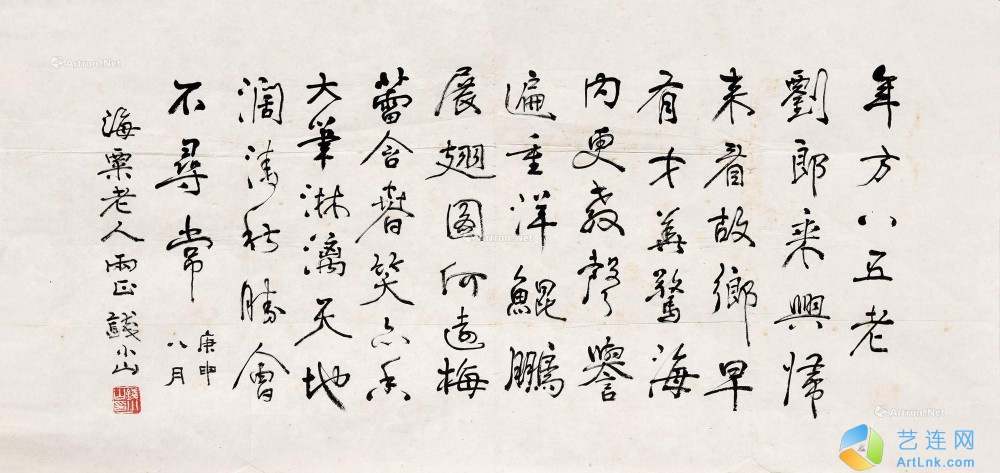 年方八五老
劉郎乘興歸
来看故鄉早
有才華驚海
內更教聲譽
遍重洋鯤鵬
展翅圖何遠梅
蕾含馨笑亦香
大筆淋漓天地
濶濤社勝會
不尋常
庚申
八月
海粟老人兩正 錢小山
Artron.Net
Artron.Net
Artron.Net
Artron.Net
艺连网
ArtLnk.com